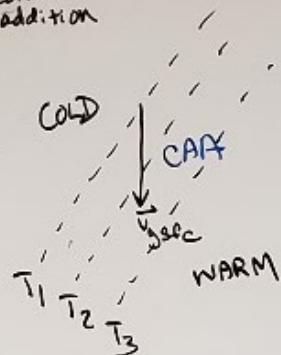 addition
COLD
CAA
V⃗gsfc
WARM
T1
T2
T3